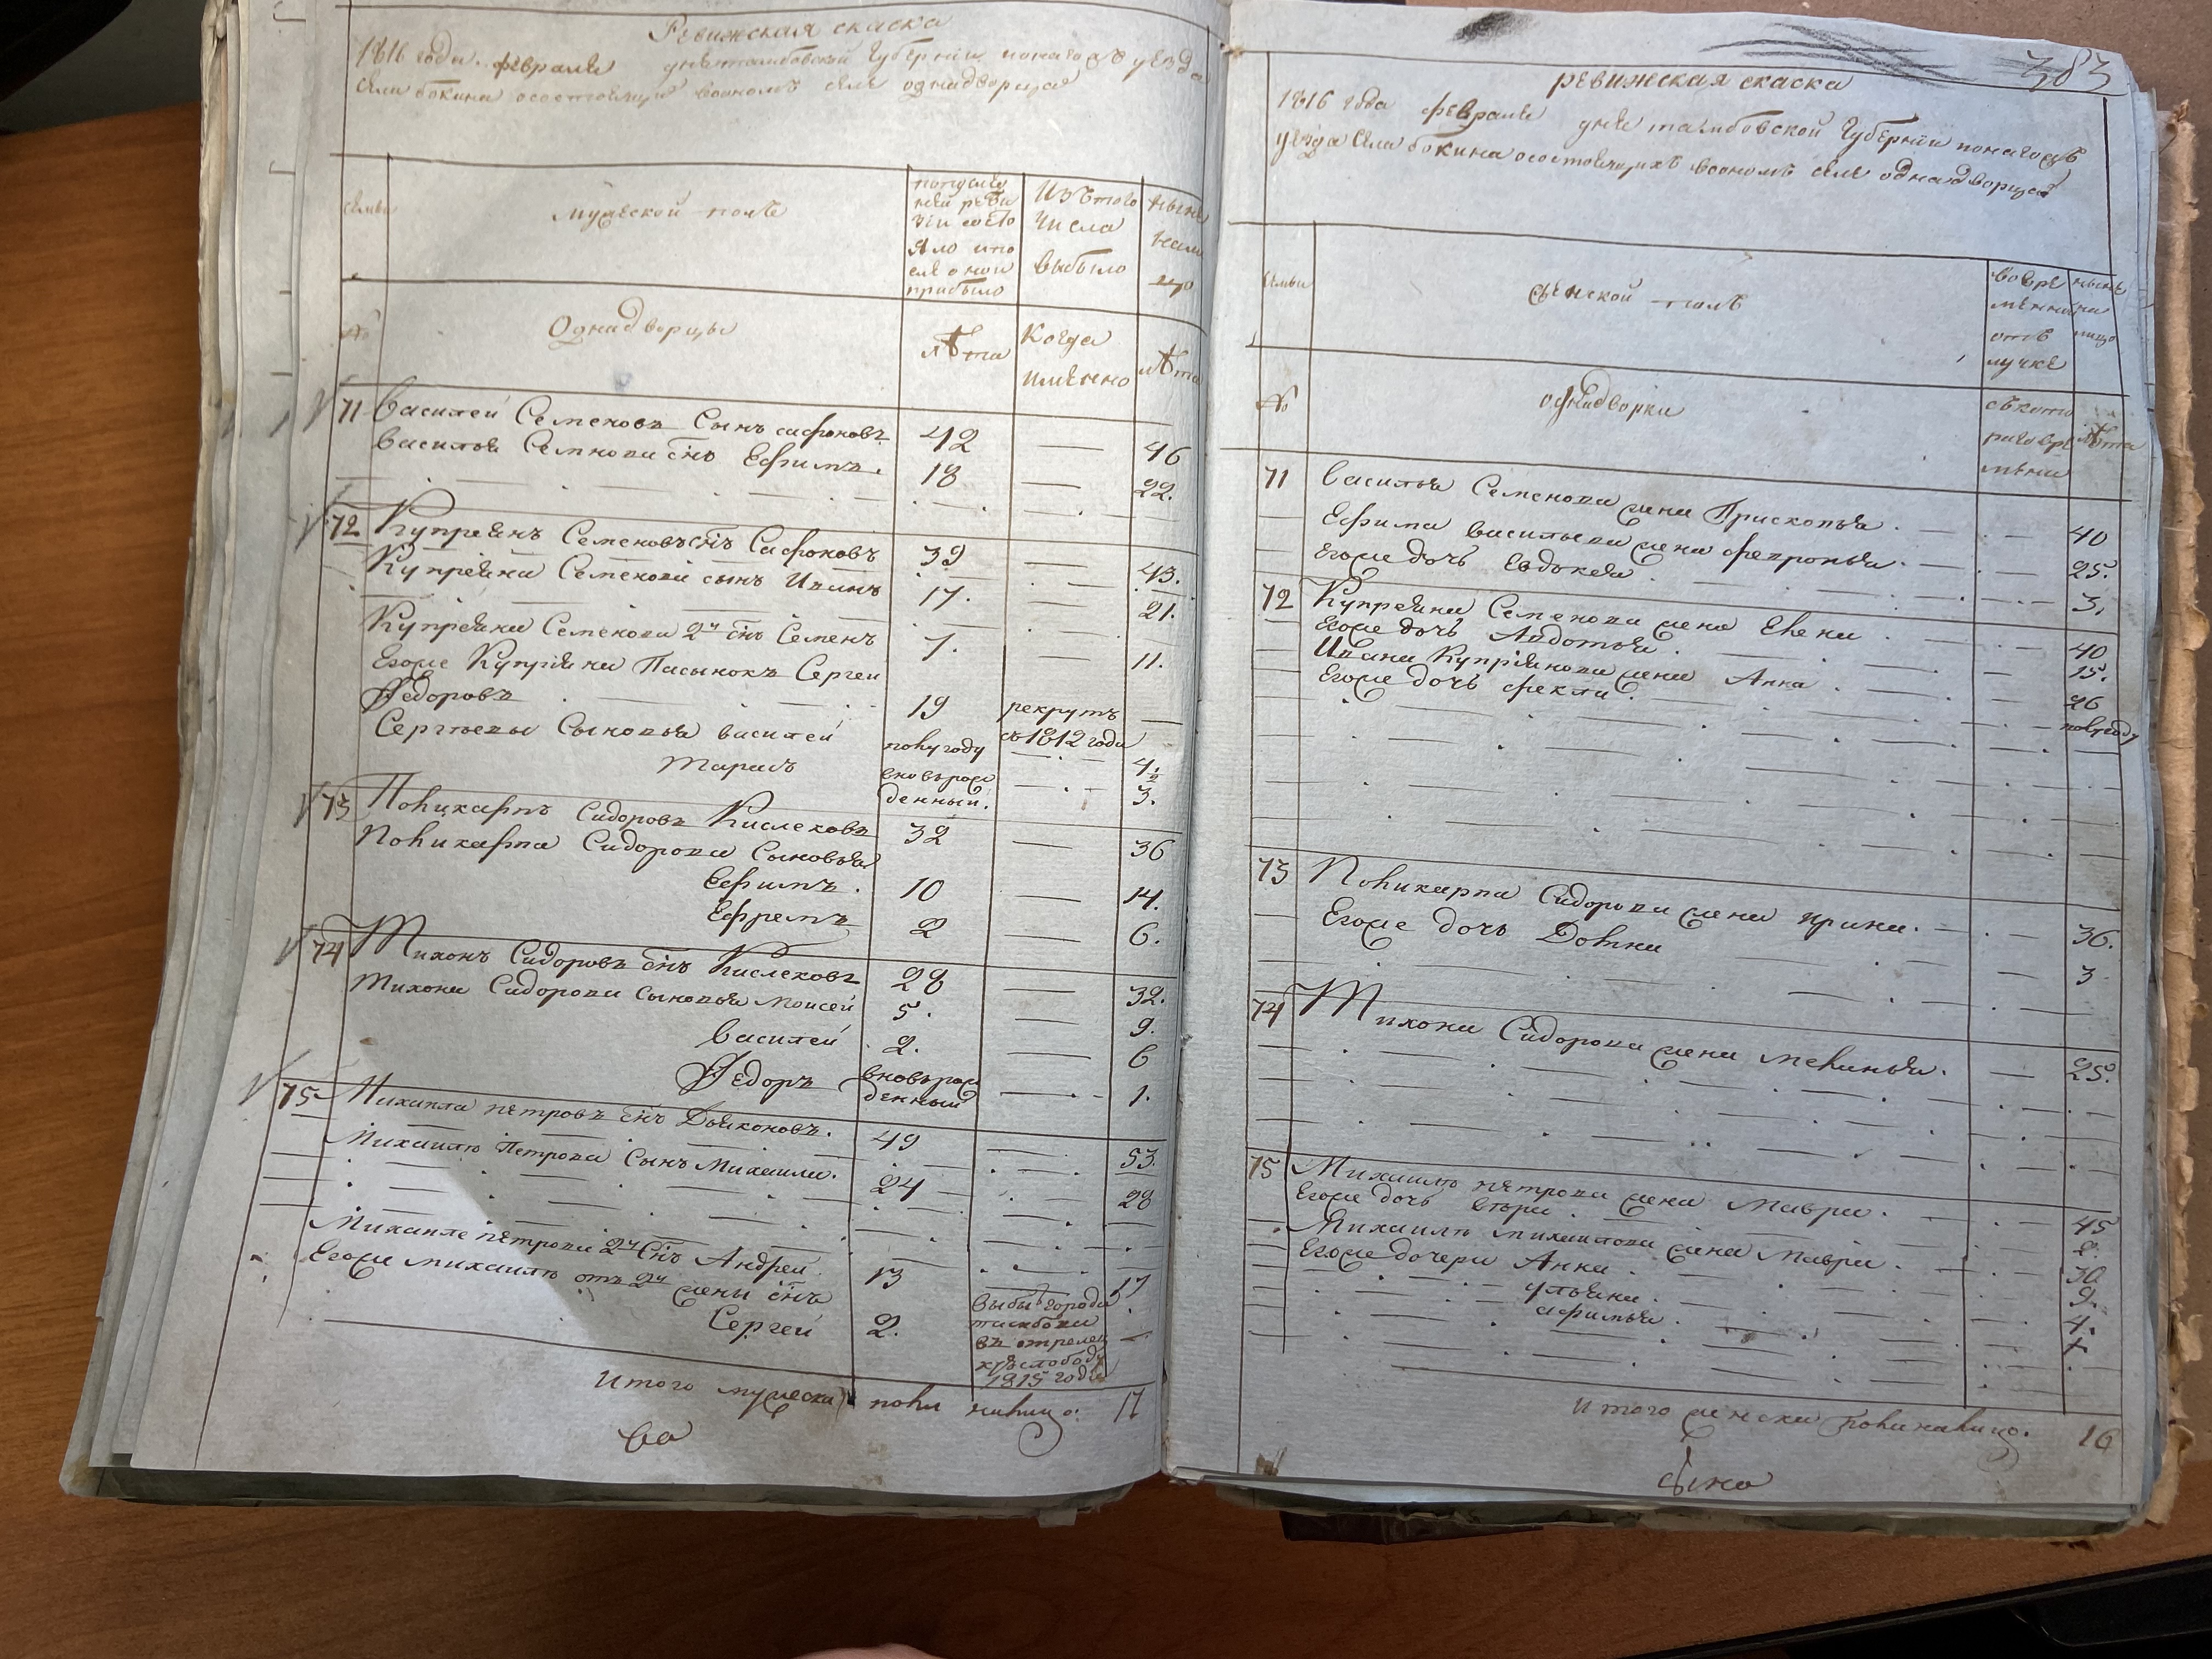 Ревижская скаска
1816 года февраля дня тамбовской губернии тогожъ уезда
села бокина осостоящихъ воономъ селе однадворца
семьи
мужеской полъ
попослед
ней реви
зіи состо
яло ипо
сле оной
прибыло
Изътого
числа
выбыло
ныне
нали
цо
№
Однадворцы
лѣта
Когда
имѣнно
лѣта
71 Василей Семеновъ Сынъ сафоновъ 42 — 46
Василья Семнова снъ Ефимъ. 18 — 22.
72 Купреянъ Семеновъ снъ Сафоновъ 39 — 43.
Купреяна Семенова сынъ Иванъ 17. — 21.
Купреяна Семенова 2й снъ Семенъ 7. — 11.
Егоже Купріяна Пасынокъ Сергей
Федоровъ 19 рекрутъ —
съ 1812 года
Сергѣевы Сыновья василей полугоду — 4 1/2
тарасъ вновьрож
денный. — 3.
73 Поликарпъ Сидоровъ Киселевъ 32 — 36
Поликарпа Сидорова Сыновья
Ефимъ. 10 — 14.
Ефремъ 2 — 6.
74 Тихонъ Сидоровъ снъ Киселевъ 28 — 32.
Тихона Сидорова сыновья Моисей 5. — 9.
Василей 2. — 6
Федоръ вновьрож
денный — 1.
75 Михаила петровъ снъ Дьяконовъ. 49 — 53.
Михаилы Петрова Сынъ Михаила. 24 — 28
Михаиле петрова 2й Снъ Андрей. 13 — 17
Егожа михаилы отъ 2й жены снъ
Сергей 2. —
выбы города
танбова
въ стрелец
кую слободу
1815 года
Итого мужеска пола налицо: 17
во
383
ревижская скаска
1816 года февраля дня тамбовской губерніи тогожъ
уезда села бокина осостоящихъ воономъ селе однадворца
семьи
женской полъ
вовре
менной
отъ
лучке
ныне
на
лицо
№
однадворки
съкото
раговре
мѣни
лѣта
71 Василья Семенова жена Прасковья. — 40
Ефима васильева жена февронья. — 25.
Егоже дочь Евдокея. — 3.
72 Купреяна Семенова жена Елена — 40
Егоже дочь Авдотья. — 15.
Ивана Купріянова жена Анна. — 26
Егоже дочь фекла. — полугоду
73 Поликарпа Сидорова жена ирина. — 36.
Егоже дочь Домна — 3
74 Тихона Сидорова жена меланья. — 25.
75 Михаилы петрова жена Мавра. — 45
Егоже дочь — 8.
Михаилы михаилова жена мавра. — 30
Егоже дочери Анна. — 9.
ульяна. — 4.
афимья.
Итого женска пола налицо. 16